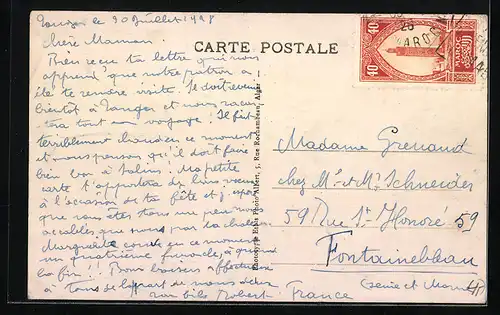 le 30 Juillet 1928
CARTE POSTALE
Chère Maman.
Bien reçu ta lettre qui nous
apprend que notre patron a
été te rendre visite. Il doit revenir
bientôt à Tanger et nous racon
tera tout son voyage! Il fait
terriblement chaud en ce moment
et nous pensons qu'il doit faire
bien bon à Salins. Ma petite
carte t'apportera de bons vœux
à l'occasion de ta fête et j'espère
que vous êtes tous un peu moins
accablés que nous par la chaleur
Marguerite en ce moment
un quatrième furoncle, à quand
la fin!! Bons baisers affectueux
à tous de la part de nous deux
ton fils Robert.
Phototypie Etabs Photo Albert, 5, Rue Rochambeau, Alger
40
40
MAROC
Madame Grenaud
chez Mr et Me Schneider
59 Rue St Honoré 59
Fontainebleau
(Seine et Marne)
France